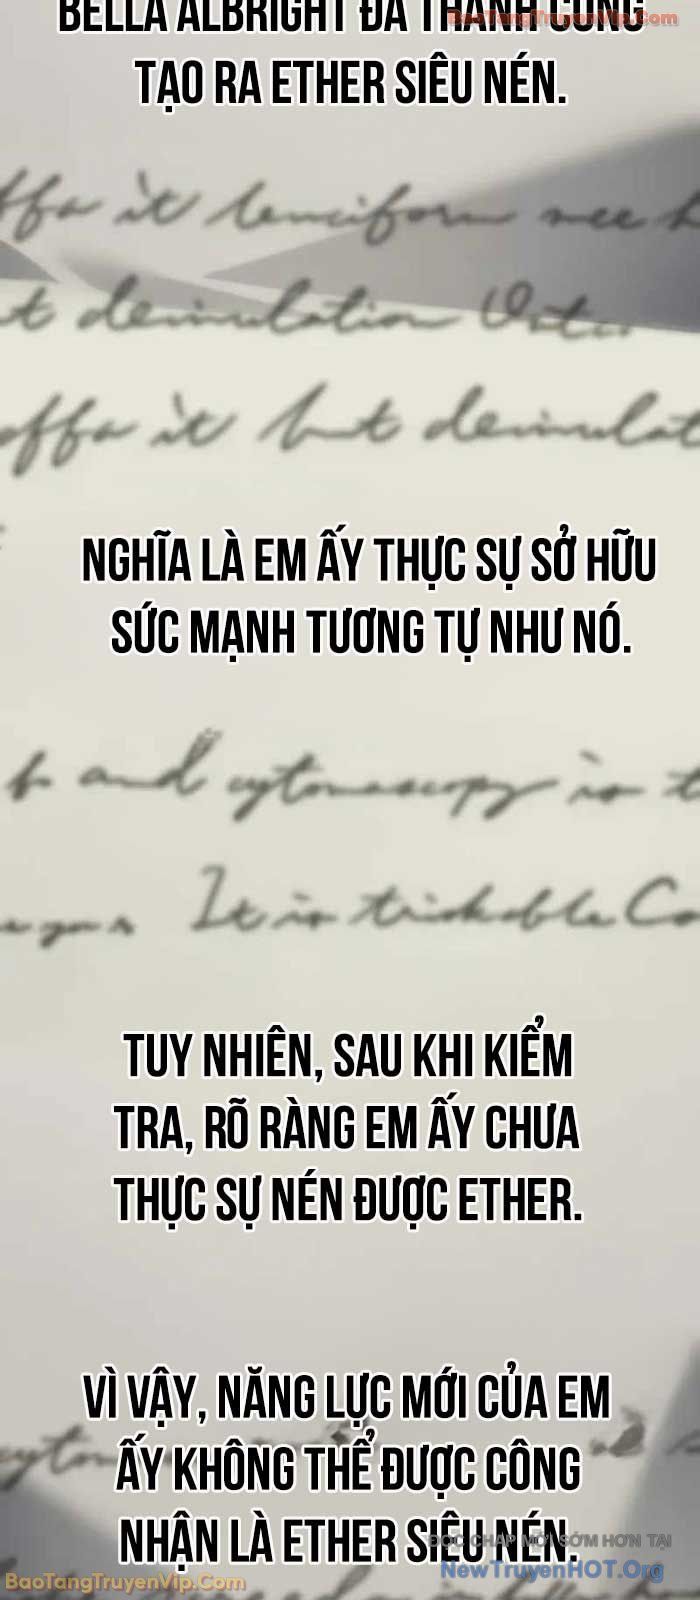 BELLA ALBRIGHT ĐÃ THÀNH CÔNG
BaoTangTruyenVip.Com
TẠO RA ETHER SIÊU NÉN.
offa it lenciform nee
demulation
offa it but demulat
NGHĨA LÀ EM ẤY THỰC SỰ SỞ HỮU
SỨC MẠNH TƯƠNG TỰ NHƯ NÓ.
and cytonescopy is
It is trickable Co
TUY NHIÊN, SAU KHI KIỂM
TRA, RÕ RÀNG EM ẤY CHƯA
THỰC SỰ NÉN ĐƯỢC ETHER.
VÌ VẬY, NĂNG LỰC MỚI CỦA EM
ẤY KHÔNG THỂ ĐƯỢC CÔNG
NHẬN LÀ ETHER SIÊU NÉN.
ĐỌC CHAP MỚI SỚM HƠN TẠI
NewTruyenHOT.Org
BaoTangTruyenVip.Com